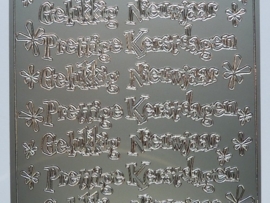 Gelukkig Nieuwjaar
Prettige Kerstdagen
Gelukkig Nieuwjaar
Prettige Kerstdagen
Gelukkig Nieuwjaar
Prettige Kerstdagen
Gelukkig Nieuwjaar